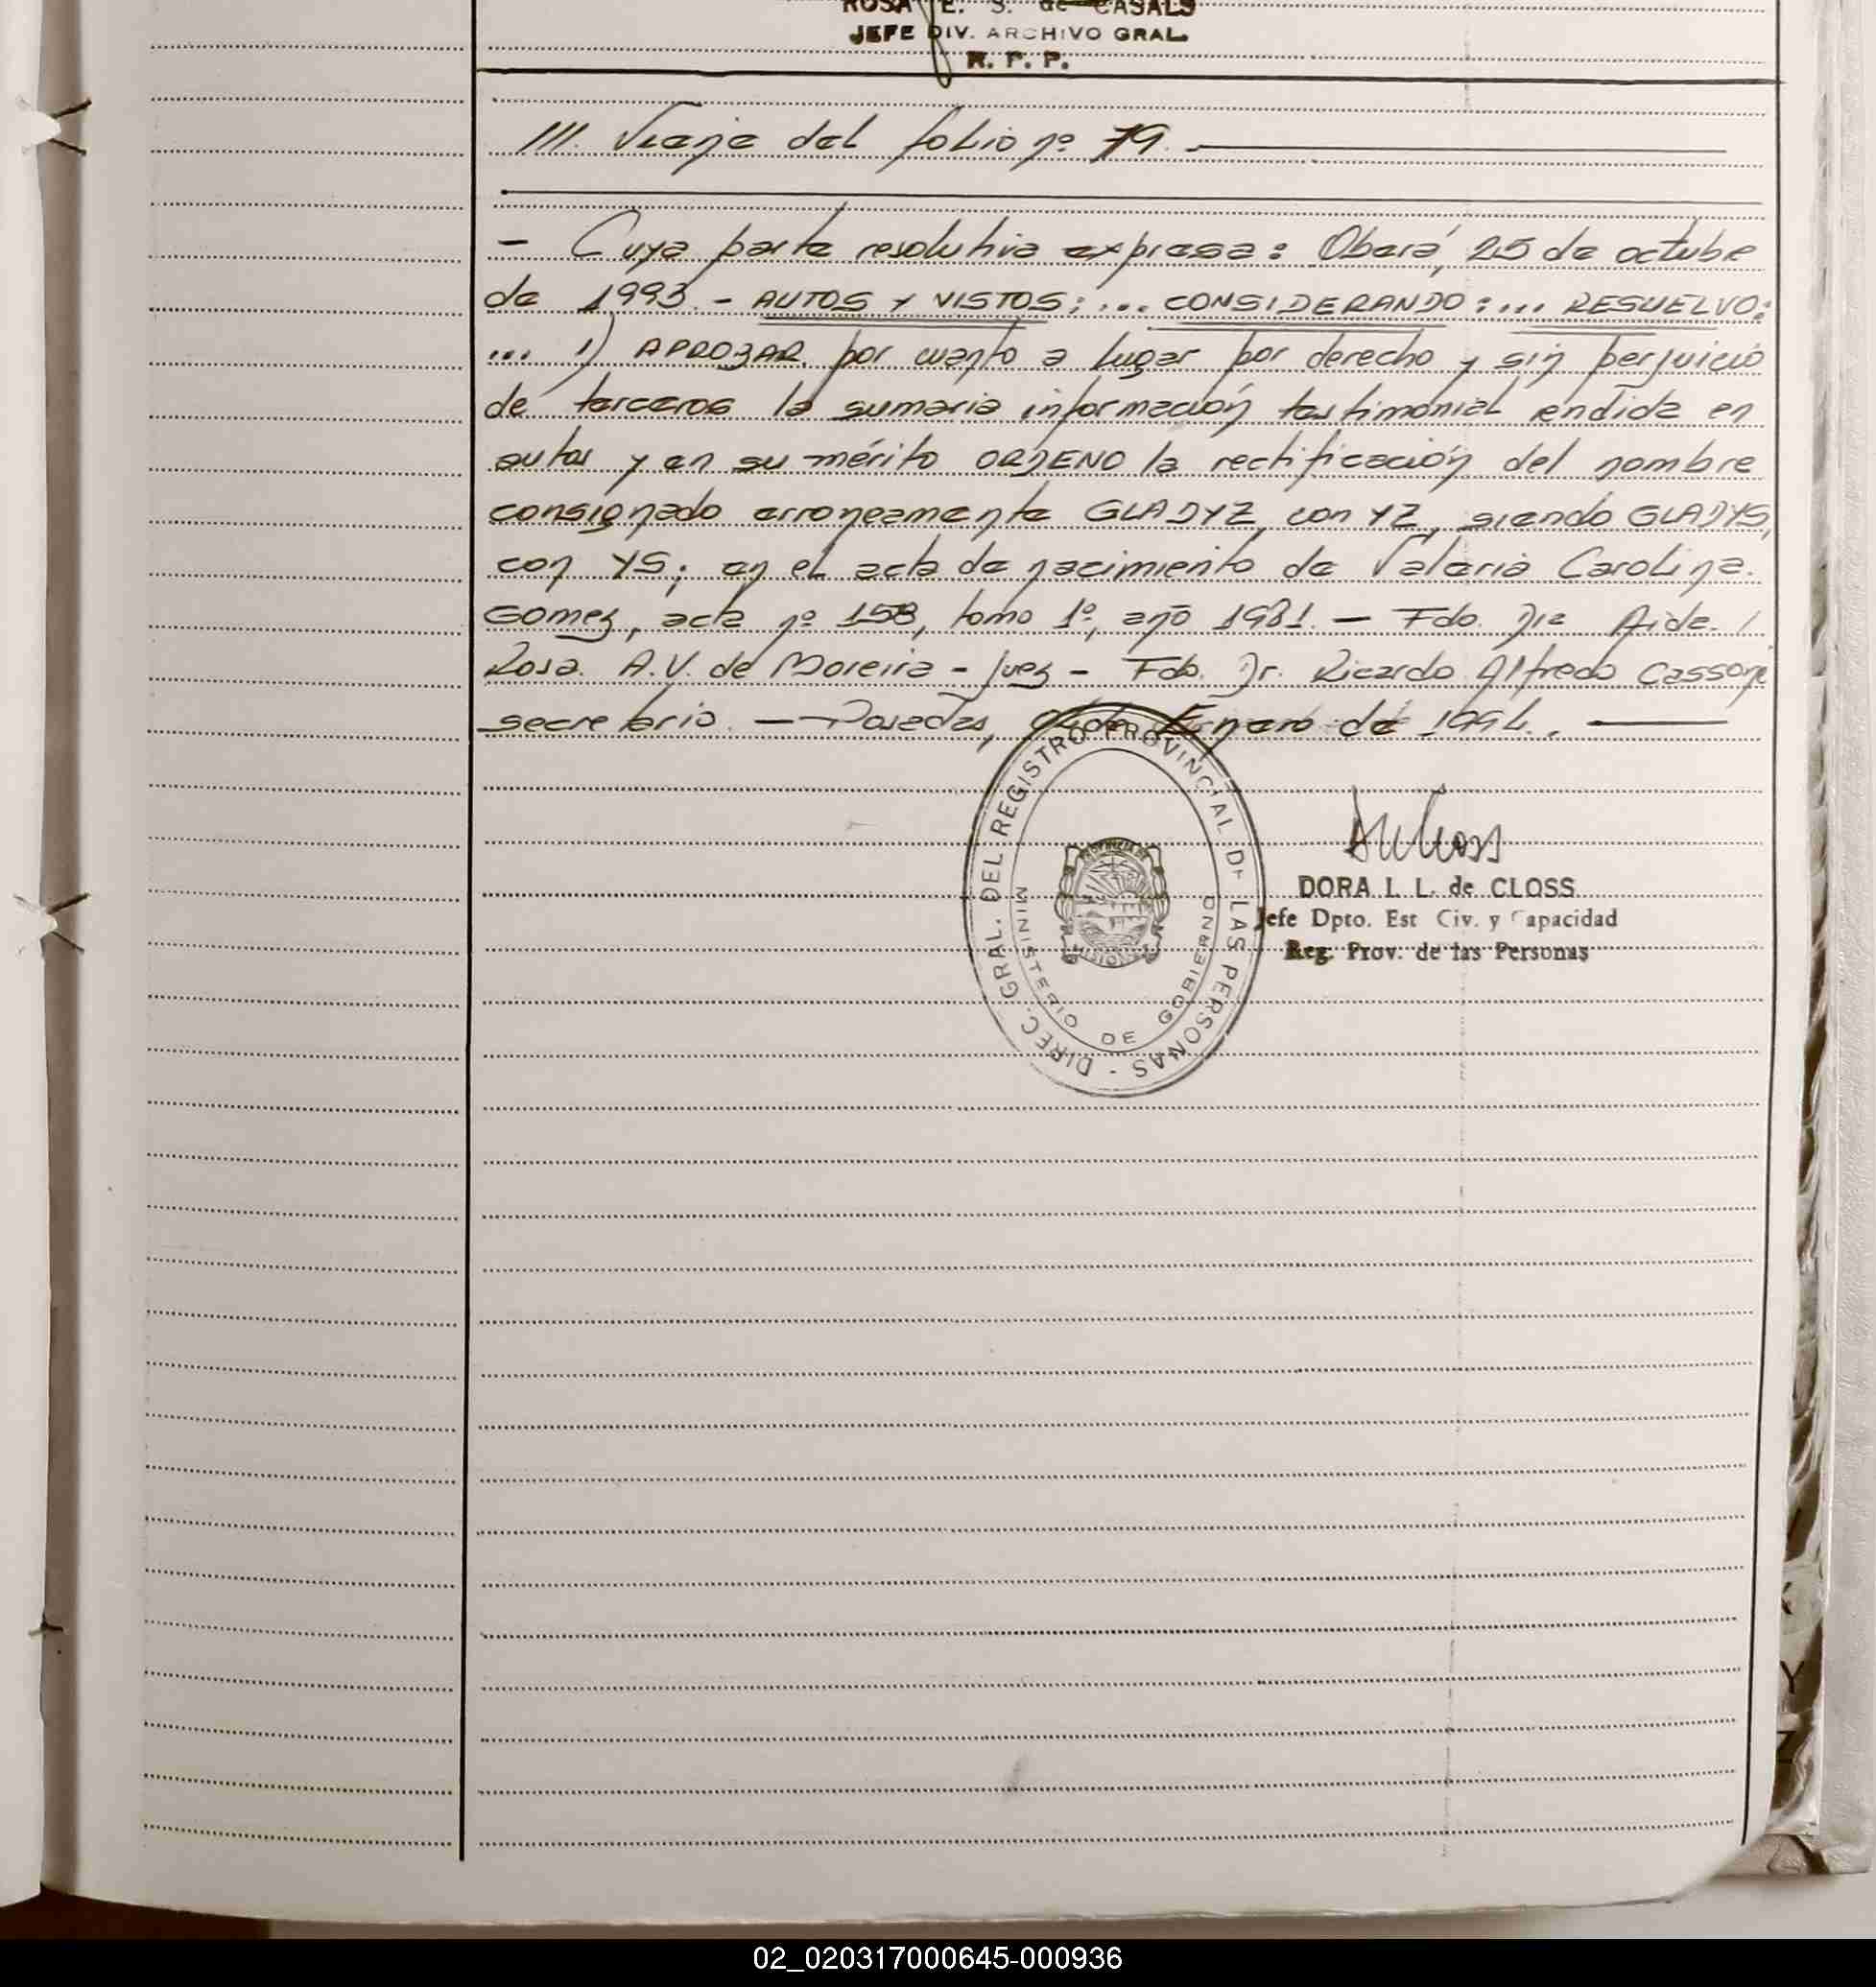 ROSA E. S. de CASALS
JEFE DIV. ARCHIVO GRAL.
R. P. P.
///. Viene del folio nº 79.
- Cuya parte resolutiva expresa: Oberá, 25 de octubre
de 1993. - AUTOS Y VISTOS: ... CONSIDERANDO: ... RESUELVO:
... 1) APROBAR. por cuanto a lugar por derecho y sin perjuicio
de terceros la sumaria información testimonial rendida en
autos y en su mérito ORDENO la rectificación del nombre
consignado erroneamente GLADYZ, con YZ, siendo GLADYS,
con YS; en el acta de nacimiento de Valeria Carolina.
Gomez, acta nº 158, tomo 1º, año 1981. - Fdo. Dra Aide /
Rosa. A.V. de Moreira - Juez - Fdo. Dr. Ricardo Alfredo Cassoni
secretario. - Posadas, de Enero de 1994.
DIREC. GRAL. DEL REGISTRO PROVINCIAL DE LAS PERSONAS -
MINISTERIO DE GOBIERNO
PROVINCIA DE
MISIONES
DORA I. L. de CLOSS
Jefe Dpto. Est Civ. y Capacidad
Reg. Prov. de las Personas
Y
Z
02_020317000645-000936